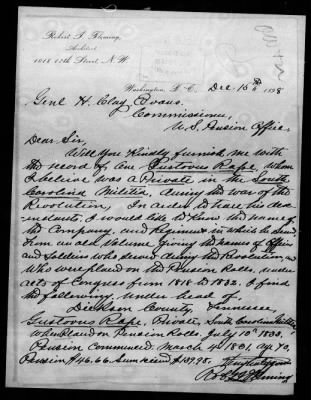 Robert I. Fleming,
Architect
1018 17th Street, N.W.
Washington, D.C. Dec. 15th 1898
Genl H. Clay Evans.
Commissioner,
U.S. Pension Office.
Dear Sir,
Will you kindly furnish me with
the record of one Gustovus Rape whom
I believe was a Private in the South
Carolina Militia, during the war of the
Revolution, In order to have his des-
cendants. I would like to know the name of
the Company, and Regiment in which he served
From an old Volume giving the names of Officers
and Soldiers who served during the Revolution, and
Who were placed on the Pension Rolls, under
acts of Congress from 1818 to 1832. I find
the following, under head of.
Dickson County, Tennessee,
Gustovus Rape, Private, South Carolina Militia,
when placed on Pension Rolls July 10th 1833.
Pension Commenced March 4th 1831, age 70,
Pension $46.66. Sum received $139.98.
Robt I. Fleming